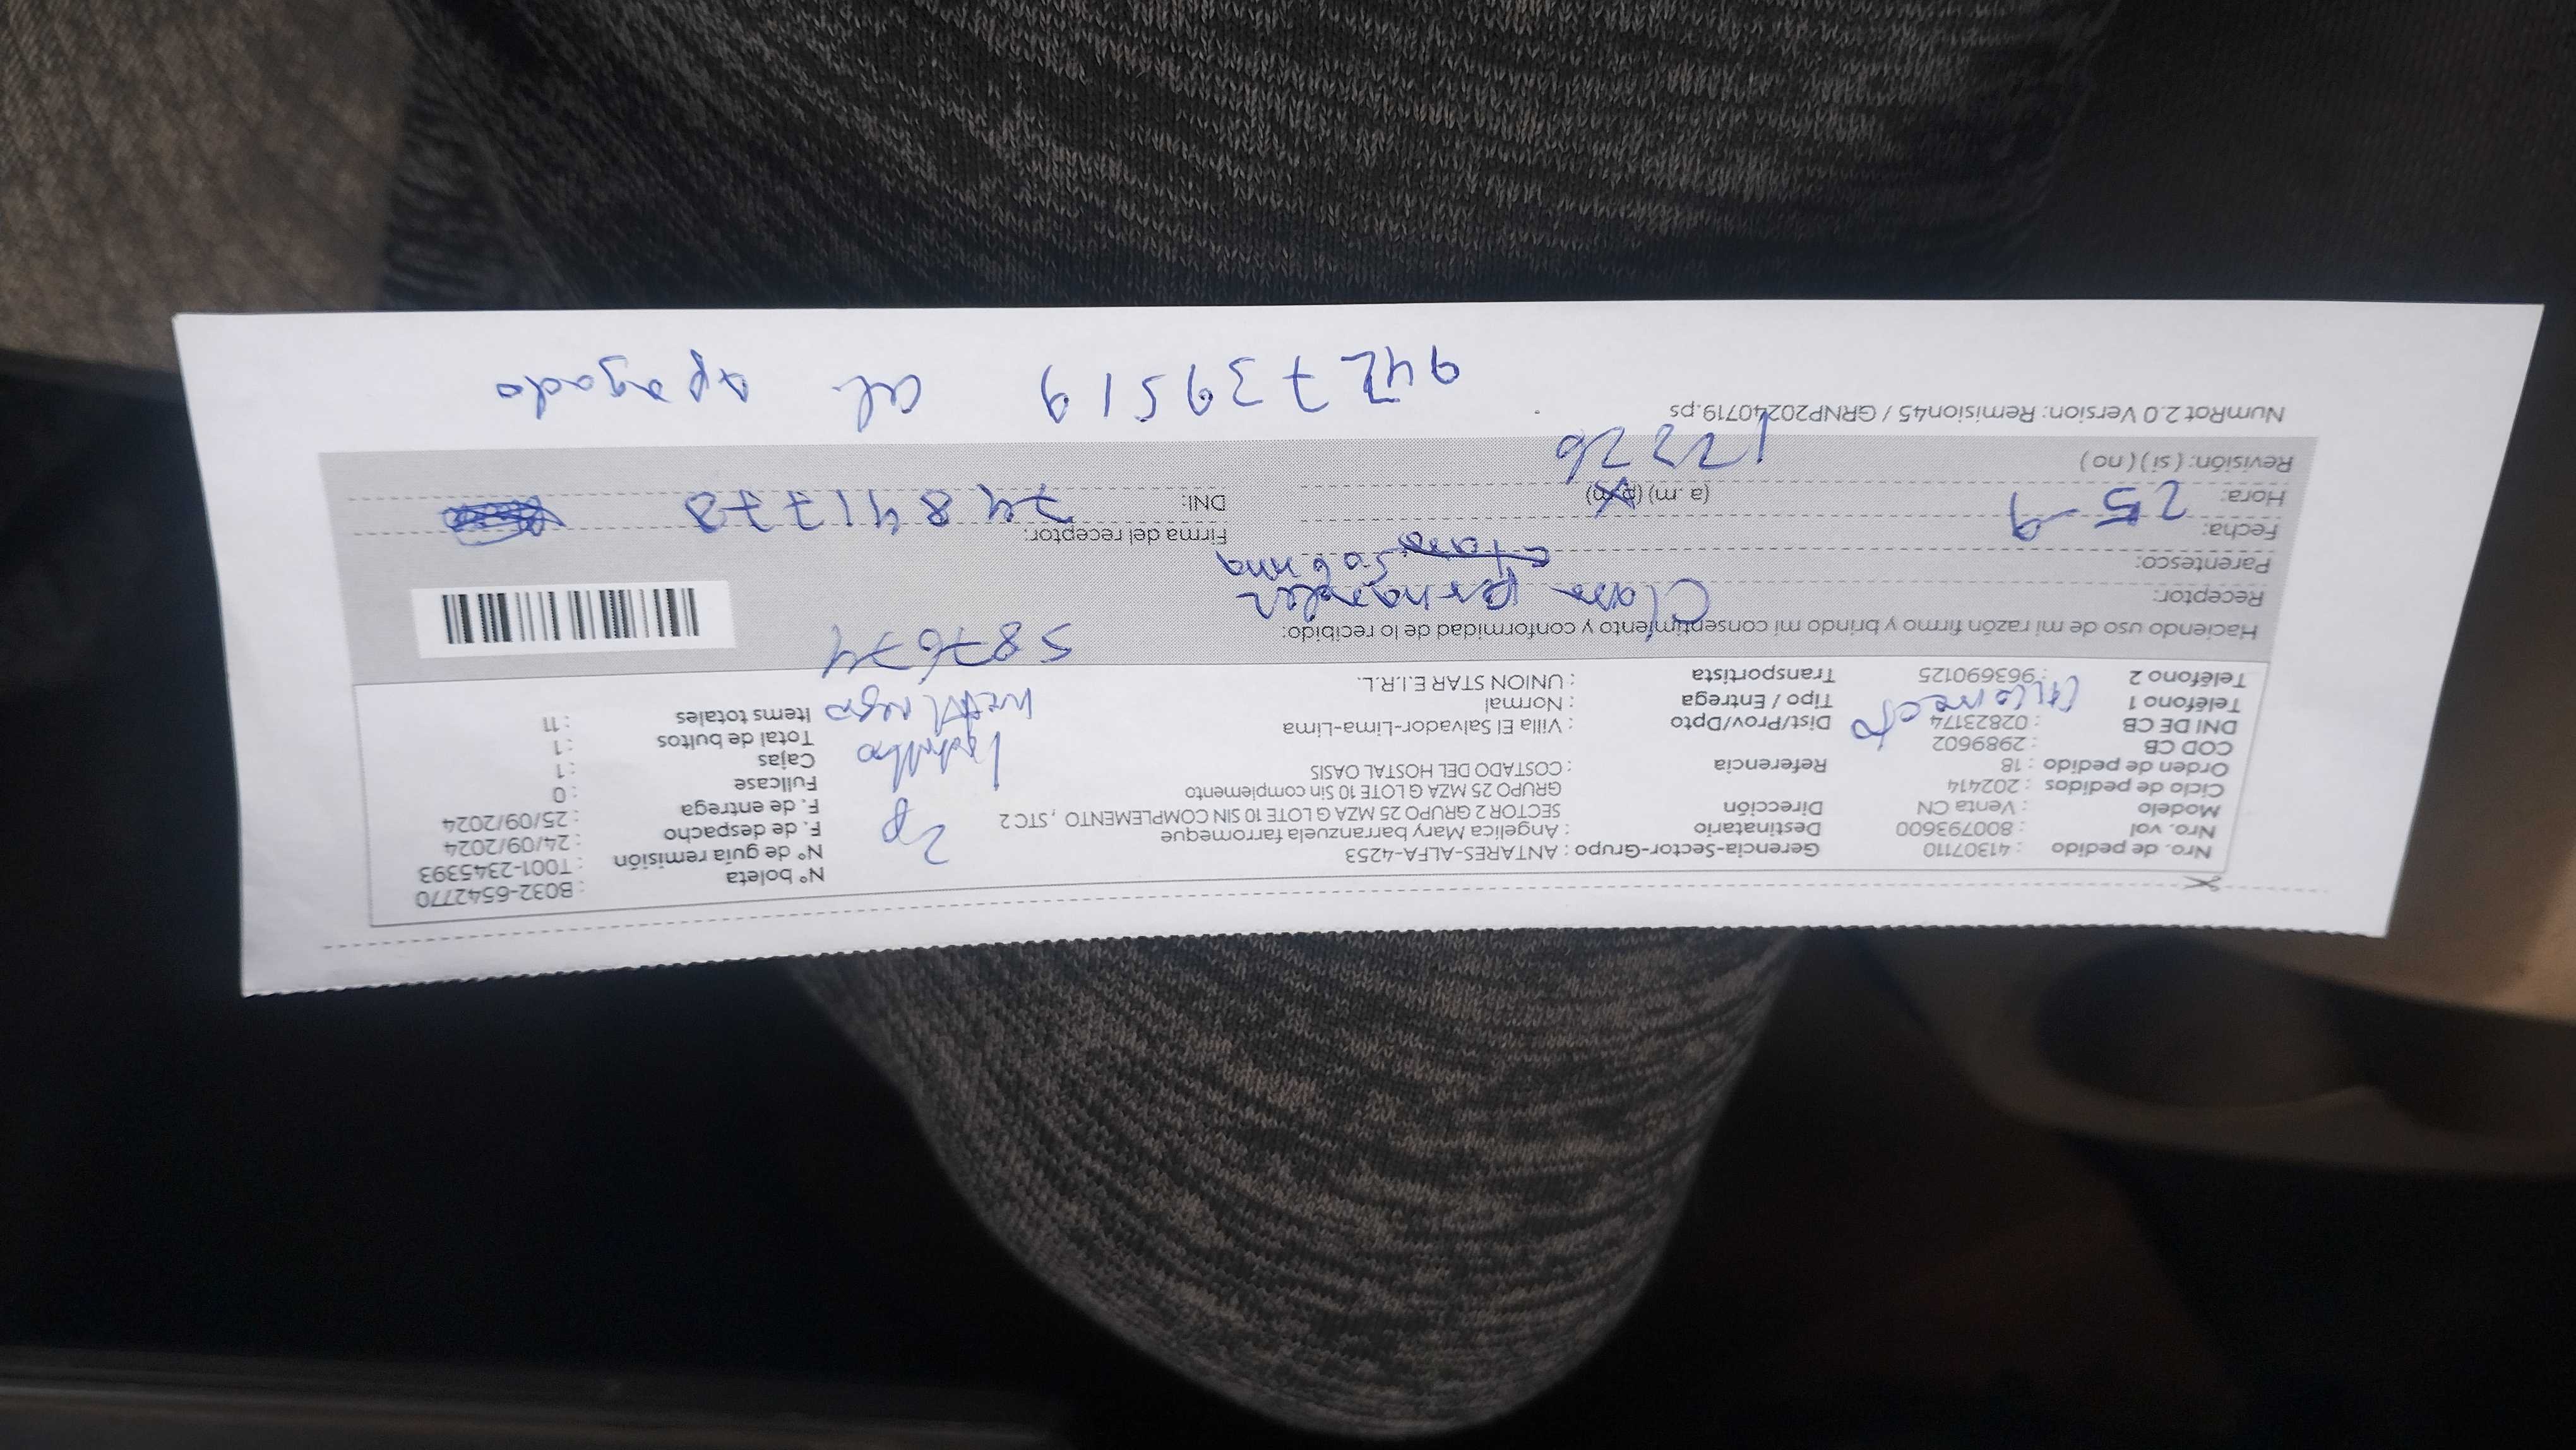 Nro. de pedido : 41307110
Nro. vol : 800793600
Modelo : Venta CN
Ciclo de pedidos : 202414
Orden de pedido : 18
COD CB : 2989602
DNI DE CB : 02823174
Teléfono 1
Teléfono 2 : 963690125
Gerencia-Sector-Grupo : ANTARES-ALFA-4253
Destinatario : Angelica Mary barranzuela farromeque
Dirección SECTOR 2 GRUPO 25 MZA G LOTE 10 SIN COMPLEMENTO , STC 2
GRUPO 25 MZA G LOTE 10 Sin complemento
Referencia : COSTADO DEL HOSTAL OASIS
Dist/Prov/Dpto : Villa El Salvador-Lima-Lima
Tipo / Entrega : Normal
Transportista : UNION STAR E.I.R.L.
N° boleta : B032-6542770
N° de guía remisión : T001-2345393
F. de despacho : 24/09/2024
F. de entrega : 25/09/2024
Fullcase : 0
Cajas : 1
Total de bultos : 1
Items totales : 11
2p
ladrillo
metal negro
587674
Haciendo uso de mi razón firmo y brindo mi consentimiento y conformidad de lo recibido:
Receptor: Clara
Parentesco: Sobrina
Fecha: 25-9
Hora: (a .m) (p.m) 1226
Revisión: ( si ) ( no )
Firma del receptor:
DNI: 74841773
NumRot 2.0 Version: Remision45 / GRNP20240719.ps
942739519 cel. apagado